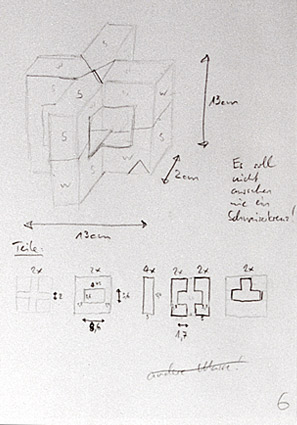 S
W
S
S
W
S
S
W
W
13cm
2cm
Es soll
nicht
aussehen
wie ein
Schweizerkreuz!
13cm
Teile:
2x 2x 4x 2x 2x 2x
1,7
andere Masse!
6